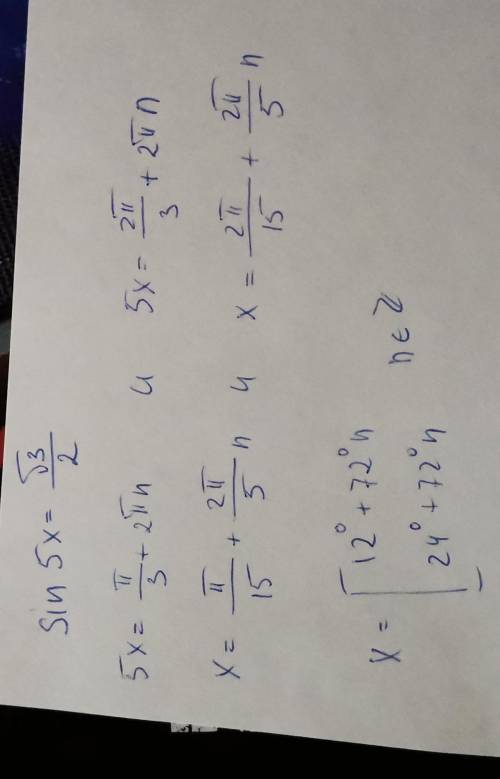 sin 5x = √3/2
5x = π/3 + 2πn и 5x = 2π/3 + 2πn
x = π/15 + 2π/5 n и x = 2π/15 + 2π/5 n
x = [ 12° + 72°n
24° + 72°n n ∈ Z